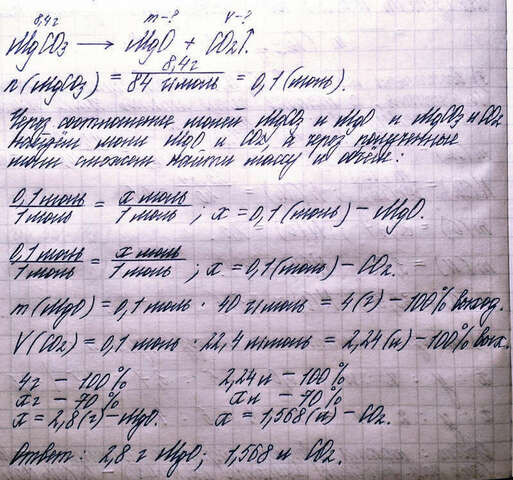 8,4г m-? V-?
MgCO3 → MgO + CO2↑.
n(MgCO3) = 8,4г / 84 г/моль = 0,1 (моль).
Через соотношение молей MgCO3 и MgO и MgCO3 и CO2
найдём моли MgO и CO2, а через полученные
моли сможем найти массу и объём:
0,1 моль / 1 моль = x моль / 1 моль ; x = 0,1 (моль) - MgO.
0,1 моль / 1 моль = x моль / 1 моль ; x = 0,1 (моль) - CO2.
m(MgO) = 0,1 моль · 40 г/моль = 4(г) - 100% выход.
V(CO2) = 0,1 моль · 22,4 л/моль = 2,24(л) - 100% вых.
4г - 100% 2,24л - 100%
xг - 70% xл - 70%
x = 2,8(г) - MgO. x = 1,568(л) - CO2.
Ответ: 2,8 г MgO; 1,568 л CO2.